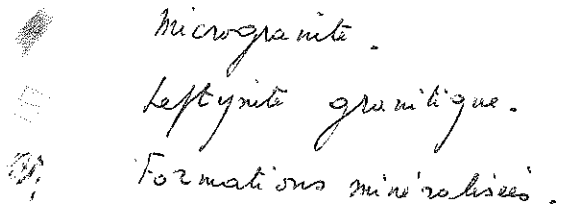 Microgranite.
Leptynite granitique.
Formations minéralisées.